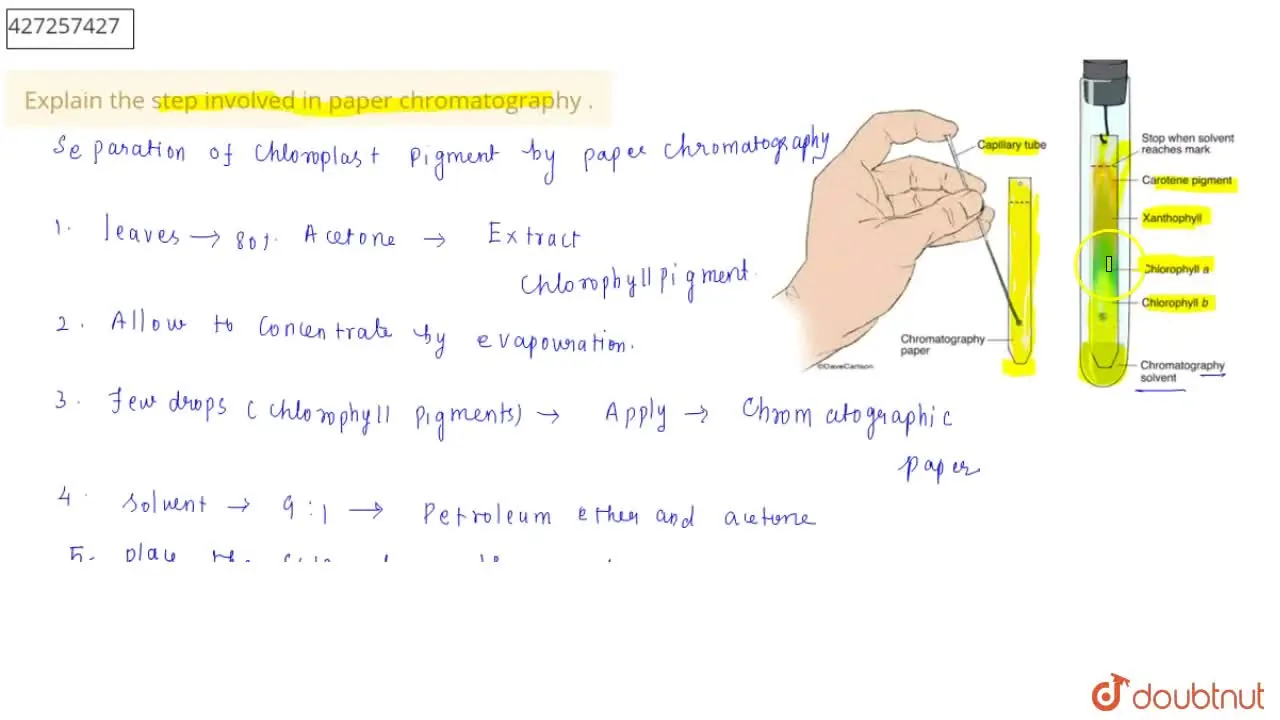 427257427
Explain the step involved in paper chromatography .
Separation of Chloroplast pigment by paper chromatography
1. leaves → 80%. Acetone → Extract
Chlorophyll pigment.
2. Allow to Concentrate by evapouration.
3. Few drops (Chlorophyll pigments) → Apply → Chromatographic
paper
4. Solvent → 9:1 → Petroleum ether and acetone
5. place the
Capillary tube
Chromatography
paper
©DaveCarlson
Stop when solvent
reaches mark
Carotene pigment
Xanthophyll
Chlorophyll a
Chlorophyll b
Chromatography
solvent
doubtnut